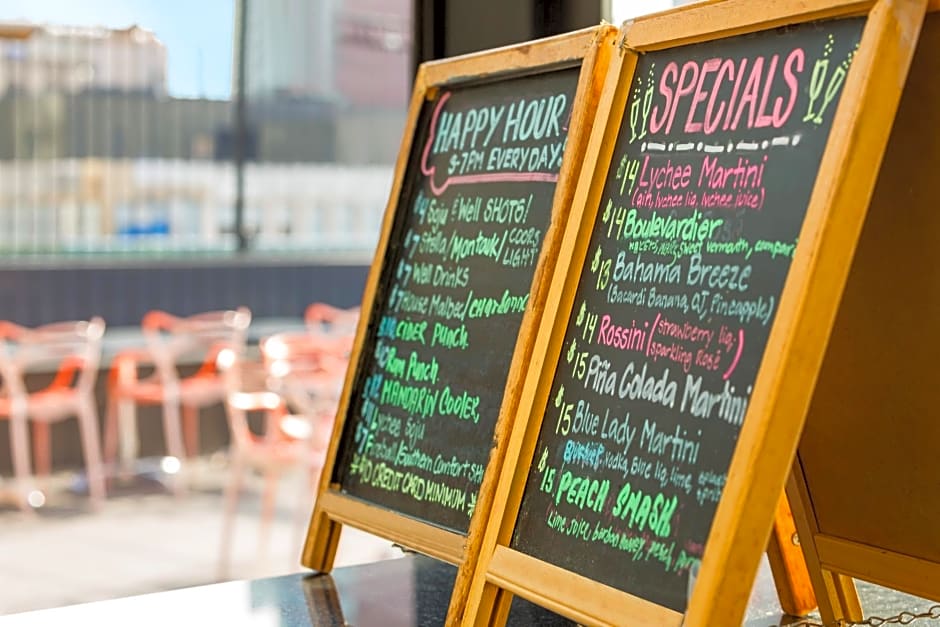 HAPPY HOUR
5-7PM EVERYDAY!
$4 Soju & Well SHOTS!
$7 Stella/Montauk/COORS LIGHT
$7 Well Drinks
$7 House Malbec/Chardonnay
CIDER PUNCH
Rum Punch
MANDARIN COOLER
Lychee Soju
/Southern Comfort
CREDIT CARD MINIMUM
SPECIALS
$14 Lychee Martini
(gin, lychee liq, lychee juice)
$14 Boulevardier
sweet vermouth, campari
$13 Bahama Breeze
(Bacardi Banana, OJ, Pineapple)
$14 Rossini (strawberry liq,
sparkling Rosé)
$15 Piña Colada Martini
$15 Blue Lady Martini
vodka, blue liq, lime,
$15 PEACH SMASH
(lime juice, bourbon, honey, peach,